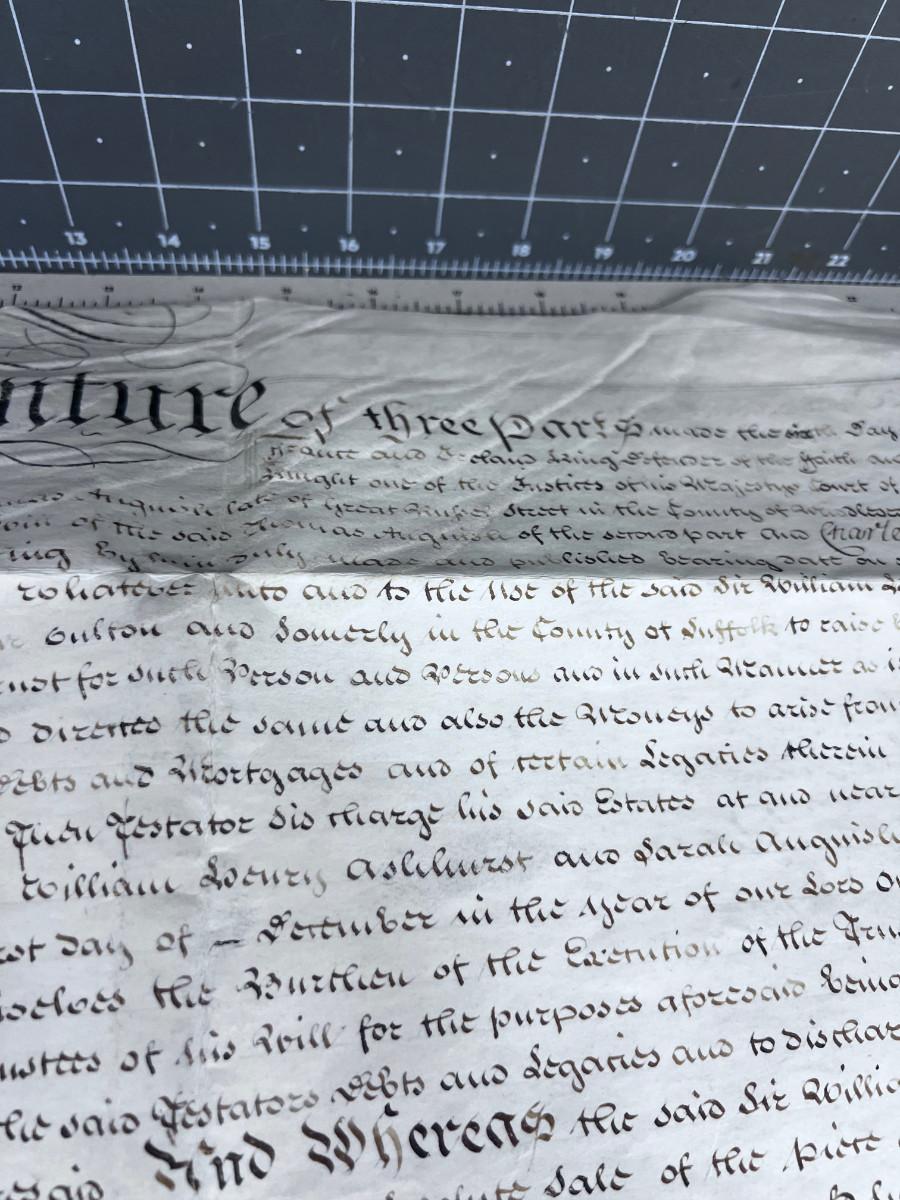 13 14 15 16 17 18 19 20 21 22
12 13 14 15 16 17 18 19
nture of three Parts made the sixth Day
France and Ireland King Defender of the Faith an
Knight one of the Justices of his Majestys Court of
Anguish late of Great Russel Street in the County of Middlesex
of the said Thomas Anguish of the second part and Charle
ing by him duly made and published bearing date on
whatever unto and to the Use of the said Sir William
Oulton and Somerly in the County of Suffolk to raise
for such Person and Persons and in such Manner as
directed the same and also the Moneys to arise from
Debts and Mortgages and of certain Legacies therein
Then Testator discharge his said Estates at and near
William Henry Ashhurst and Sarah Anguish
day of — December in the year of our Lord
selves the Burthen of the Execution of the Trus
ustees of his Will for the purposes aforesaid being
the said Testators Debts and Legacies and to dischar
said And Whereas the said Sir Willia
Sale of the piece